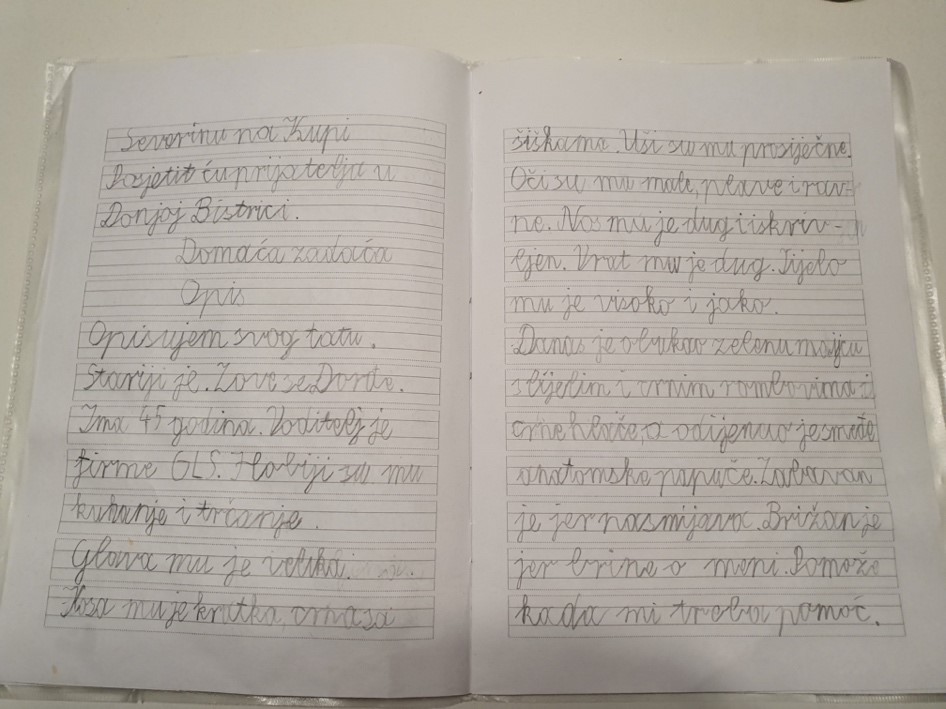 Severinu na Kupi
Posjetit ću prijatelja u
Donjoj Bistrici.
Domaća zadaća
Opis
Opisujem svog tatu.
Stariji je. Zove se Đorđe.
Ima 45 godina. Voditelj je
firme GLS. Hobiji su mu
kuhanje i trčanje.
Glava mu je velika.
Kosa mu je kratka, crna sa
šiškama. Uši su mu prosječne.
Oči su mu male, plave i rav-
ne. Nos mu je dug i iskriv-
ljen. Vrat mu je dug. Tijelo
mu je visoko i jako.
Danas je obukao zelenu majicu
s bijelim i crnim rombovima i
crne hlače, a odijenuo je smeđe
anatomske papuče. Zabavan
je jer nasmijava. Brižan je
jer brine o meni. Pomože
kada mi treba pomoć.